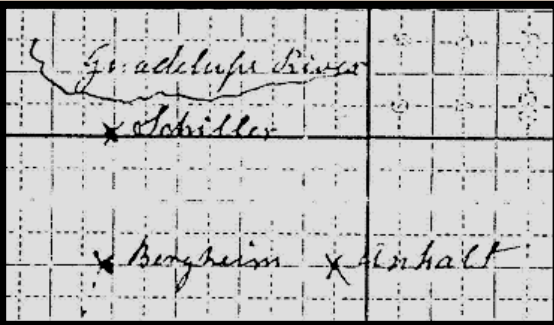 Guadelupe River
x Schiller
x Bergheim x Anhalt